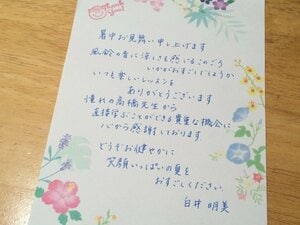 Thank you!
暑中お見舞い申し上げます
風鈴の音に涼しさを感じるこのごろ
いかがおすごしでしょうか
いつも楽しいレッスンを
ありがとうございます
憧れの高橋先生から
直接学ぶことができる貴重な機会に
心から感謝しております
どうぞお健やかに
笑顔いっぱいの夏を
おすごしください
臼井 明美